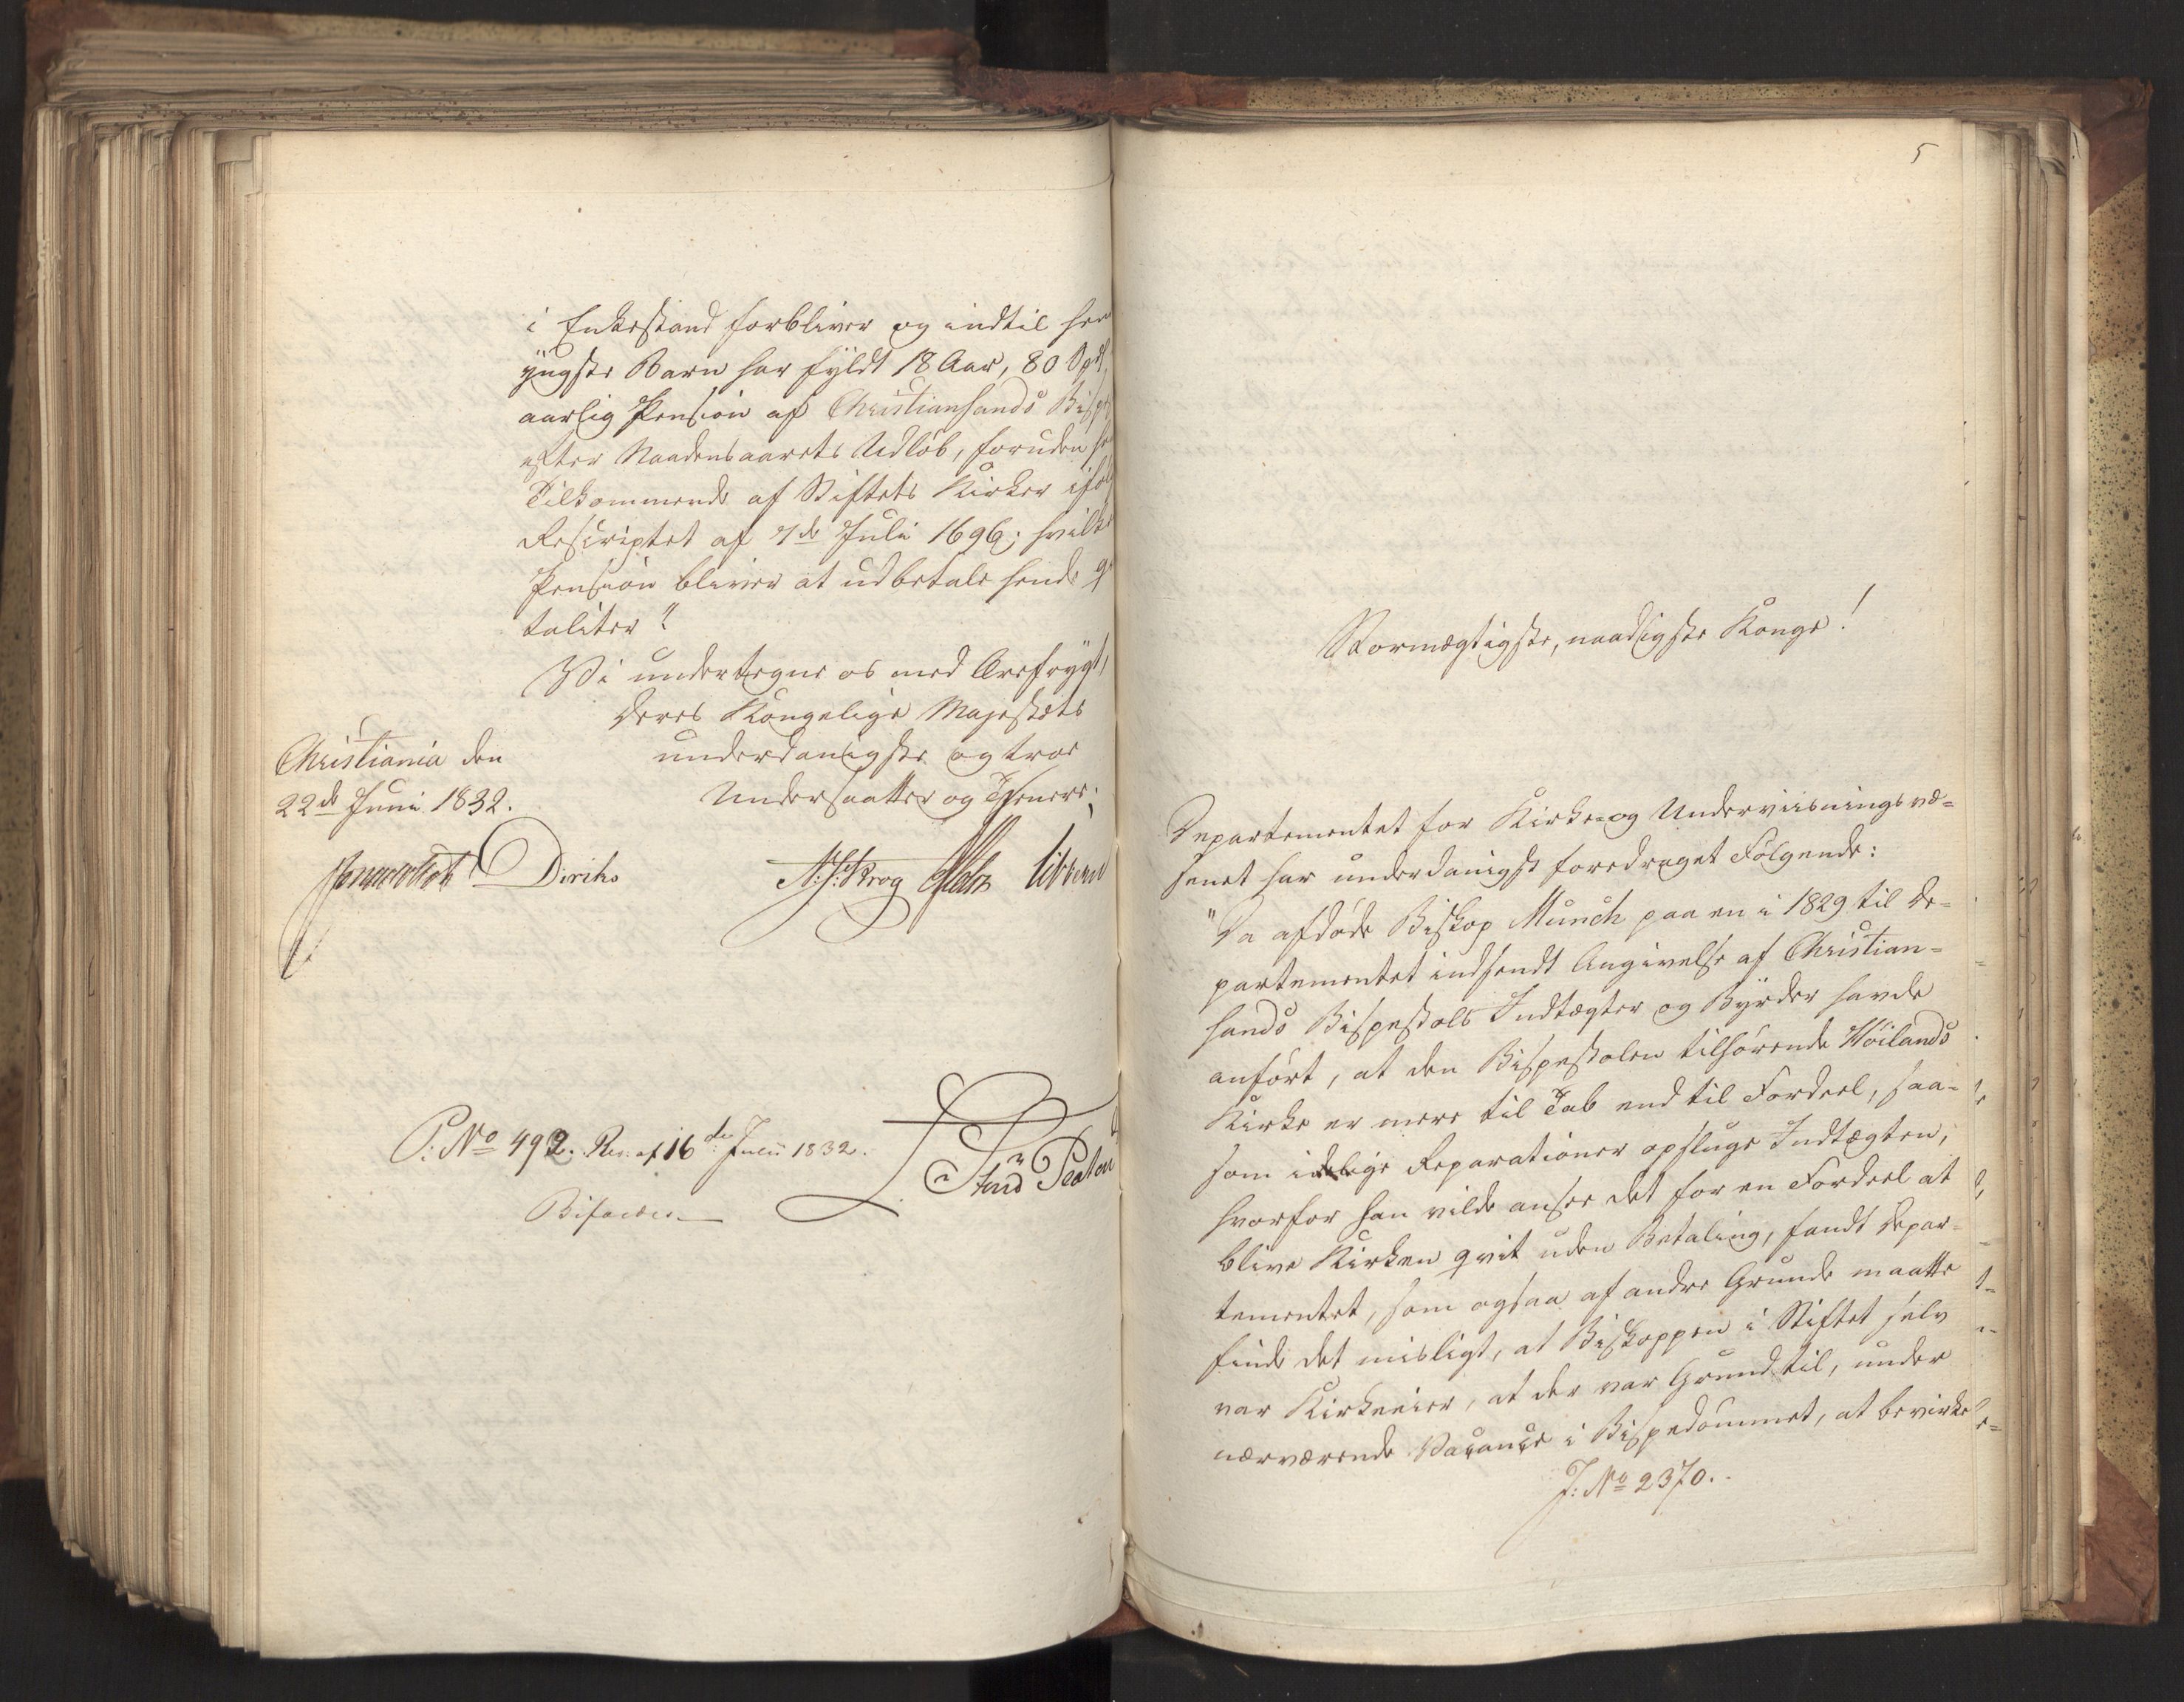 i Enkestand forbliver og indtil hen
yngste Barn har fyldt 18 Aar, 80 Spd
aarlig Pension af Christiansands Bispe
efter Naadensaarets Udløb, foruden
Tilkommende af Stiftets Kirker ifølg
Rescriptet af 7de Juli 1696; hvilke
Pension bliver at udbetale hende q
taliter"
Vi undertegne os med Ærefrygt,
Deres Kongelige Majestæts
underdanigste og troe
Undersaatter og Tjenere;
Christiania den
22de Juni 1832.
Diriks
N: J: Krog
P: No 492. Res. af 16de Julii 1832.
Bifaldes
5
Stormægtigste, naadigste Konge!
Departementet for Kirke- og Underviisningsvæ-
senet har underdanigst foredraget Følgende:
"Da afdøde Biskop Munch paa en i 1829 til De-
partementet indsendt Angivelse af Christian-
sands Bispestols Indtægter og Byrder havde
anført, at den Bispestolen tilhørende Höilands
Kirke er mere til Tab end til Fordeel, saa-
som idelige Reparationer opsluge Indtægten,
hvorfor han vilde ansee det for en Fordeel at
blive Kirken qvit uden Betaling, fandt Depar-
tementet, som ogsaa af andre Grunde maatte
finde det misligt, at Biskoppen i Stiftet selv
var Kirkeeier, at der var Grund til, under
nærværende Vacance i Bispedømmet, at bevirke
J: No 2370.